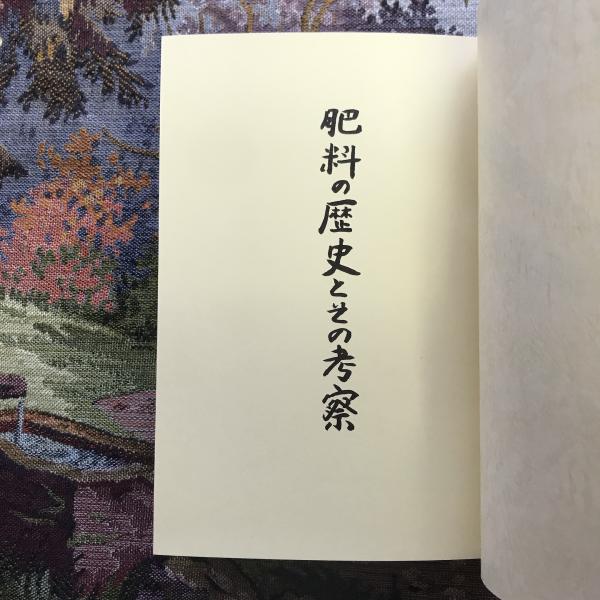 肥料の歴史とその考察